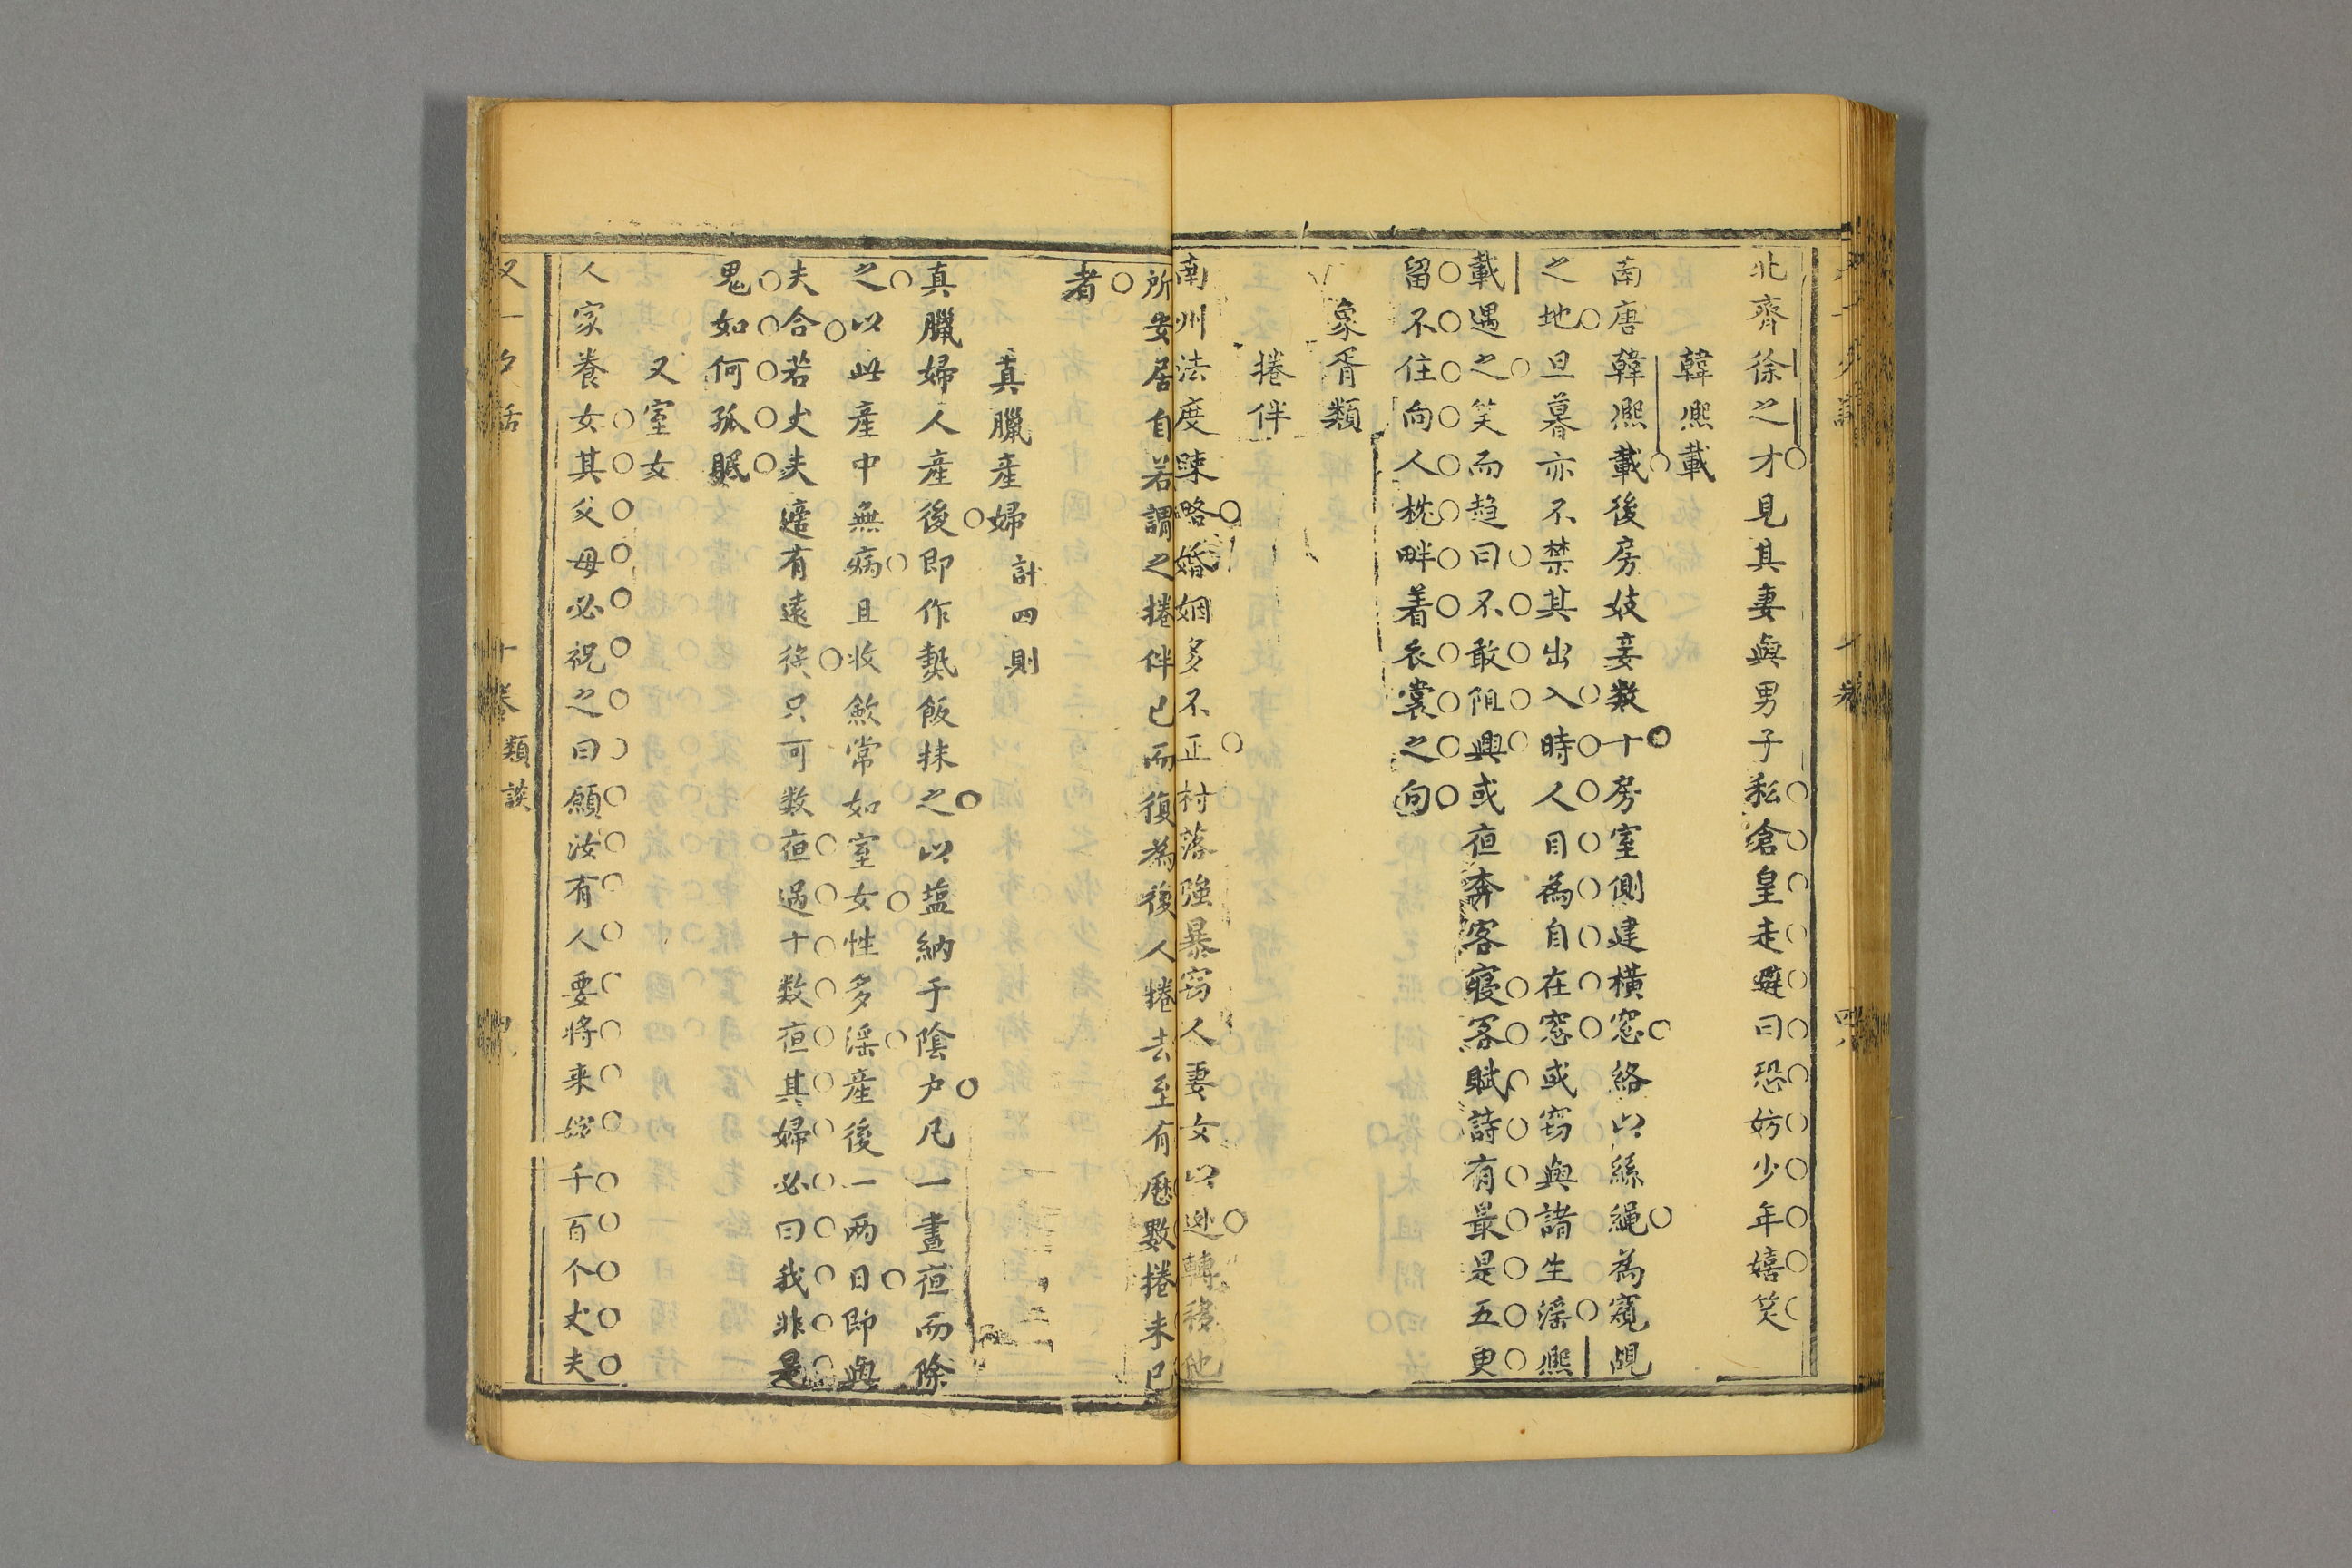 北齊徐之才見其妻與男子私倉皇走避曰恐妨少年嬉笑
韓熙載
南唐韓熙載後房妓妾数十房室側建橫窓絡以絲繩為窺覘
之地旦暮亦不禁其出入時人目為自在窓或窃與諸生淫熙
載遇之笑而趋曰不敢阻興或夜奔客寢客賦詩有最是五更
留不住向人枕畔着衣裳之向
象胥類
捲伴
南州法度踈略婚姻多不正村落強暴窃人妻女以迯轉移他
所安居自若謂之捲伴已而復為後人捲去至有歷數捲未已
者
真臘產婦 計四則
真臘婦人產後即作熱飯抹之以塩納于陰户凡一晝夜而除
之以此產中無病且收歛常如室女性多淫產後一两日即與
夫合若丈夫適有遠役只可数夜過十数夜其婦必曰我非是
鬼如何孤眠
又室女
人家養女其父母必祝之曰願汝有人要將来嫁千百个丈夫
又一夕話 十卷 類談